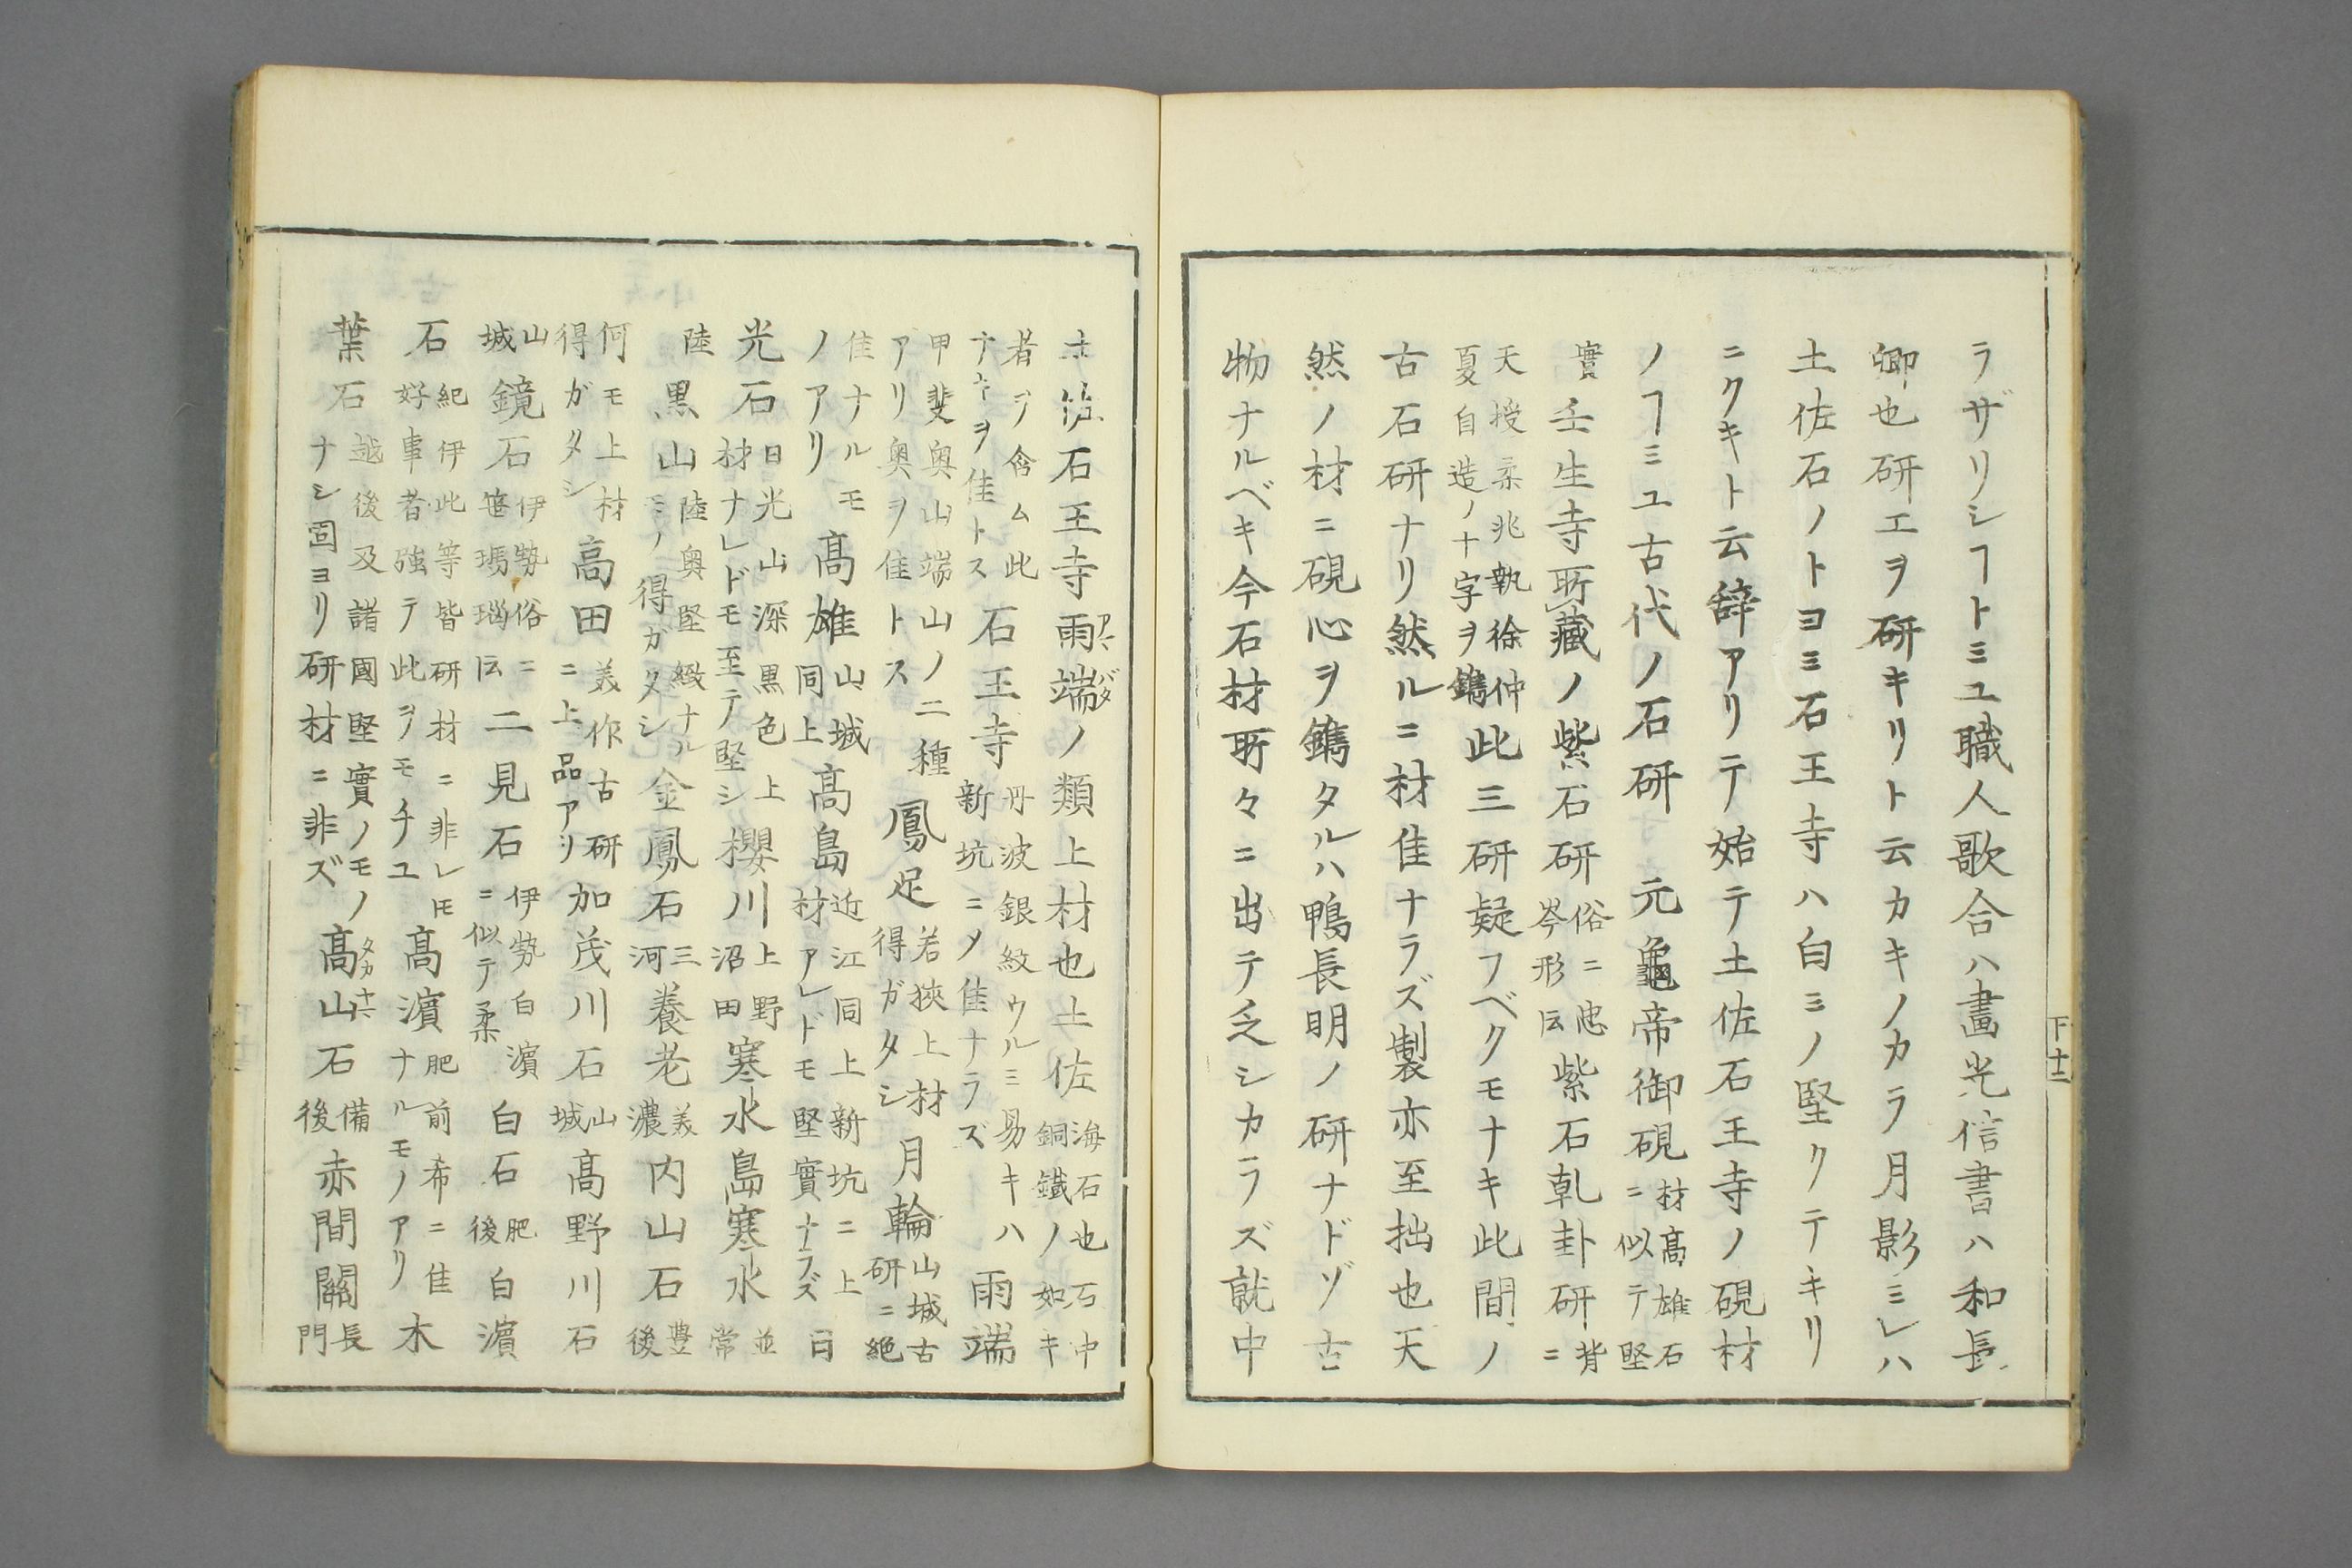 ラザリシヿトミユ職人歌合ハ畫光信書ハ和長
卿也研工ヲ研キリト云カキノカラ月影ミレハ
土佐石ノトヨミ石王寺ハ白ミノ堅クテキリ
ニクキト云辞アリテ始テ土佐石王寺ノ硯材
ノヿミユ古代ノ石研 元龜帝御硯材髙雄石ニ似テ堅
實壬生寺所藏ノ紫石研俗ニ忠岑形㕝紫石乹卦研背ニ
天授柔兆執徐仲夏自造ノ十字ヲ鐫此三研疑フベクモナキ此間ノ
古石研ナリ然ルニ材佳ナラズ製亦至拙也天
然ノ材ニ硯心ヲ鐫タルハ鴨長明ノ研ナドゾ古
物ナルベキ今石材所々ニ出テ乏シカラズ就中
下十二
土佐石王寺雨端ノ類上材也土佐海石也石中銅鐵ノ如キ
アマバタ
者ヲ含ム此ナキヲ佳トス石王寺丹波銀紋ウルミ易キハ新坑ニメ佳ナラズ雨端
甲斐奥山端山ノ二種アリ奥ヲ佳トス鳳足若狹上材得ガタシ月輪山城古研ニ絶
佳ナルモノアリ髙雄山城同上髙島近江同上新坑ニ上材アレドモ堅實ナラズ日
光石日光山深黒色上材ナレドモ至テ堅シ櫻川上野沼田寒水島寒水並常
陸黒山陸奥堅緻ナルモノ得ガタシ金鳳石三河養老美濃内山石豊後
何モ上材得ガタシ高田美作古研ニ上品アリ加茂川石山城髙野川石
山城鏡石伊勢俗ニ笹瑪瑙㕝二見石伊勢白濵ニ似テ柔白石肥後白濵
石紀伊此等皆研材ニ非レ𪜈好事者強テ此ヲモチユ髙濵肥前希ニ佳ナルモノアリ木
葉石越後及諸國堅實ノモノナシ固ヨリ研材ニ非ズ髙山石備後赤間關長門
タカヤマ